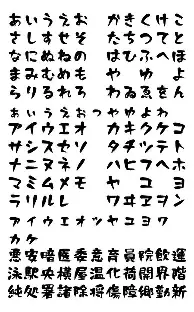 あいうえお かきくけこ
さしすせそ たちつてと
なにぬねの はひふへほ
まみむめも や ゆ よ
らりるれろ わゐゑをん
ぁぃぅぇぉっゃゅょゎ
アイウエオ カキクケコ
サシスセソ タチツテト
ナニヌネノ ハヒフヘホ
マミムメモ ヤ ユ ヨ
ラリルレロ ワヰヱヲン
ァィゥェォッャュョヮ
ヵヶ
悪安暗医委意育員院飲運
泳駅央横屋温化荷開界階
純処署諸除将傷障郷勤新